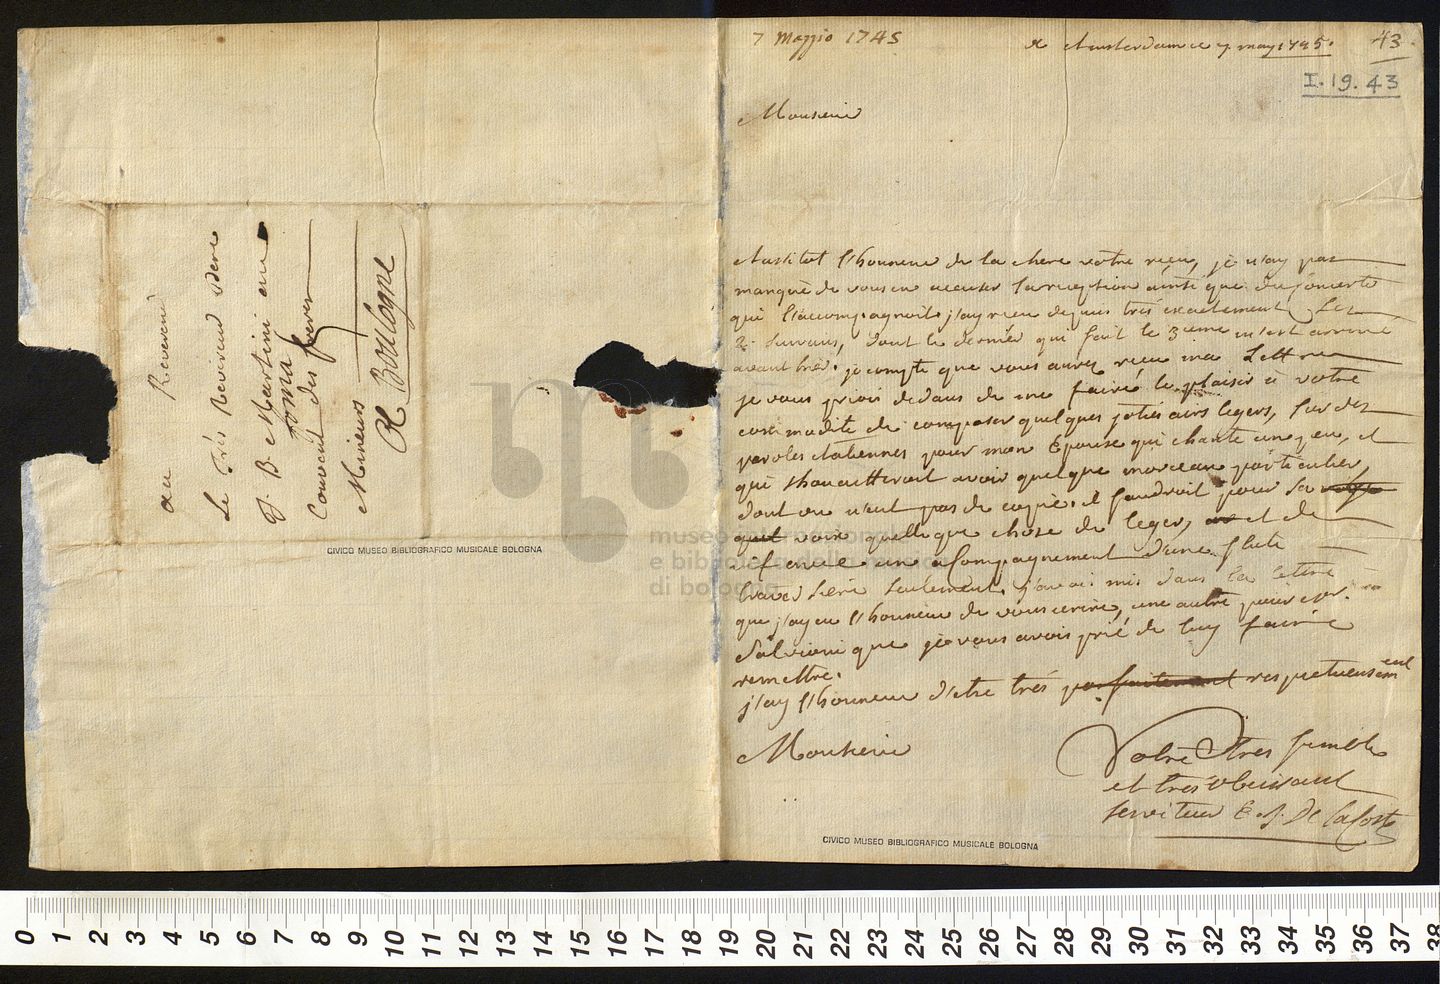 au Reverend
Le Trés Reverend Pere
J. B. Martini au
Convent des freres
Mineurs
A Boulogne
CIVICO MUSEO BIBLIOGRAFICO MUSICALE BOLOGNA
museo internazionale
e biblioteca della musica
di bologna
7 Maggio 1745
A Amsterdam ce 7 may 1745.
43.
I.19.43
Monsieur
Aussitot l'honneur de la chere votre recu, je n'ay pas
manqué de vous en accuser la reception ainsi que du Concerto
qui l'accompagnoit. j'ay recu depuis trés exactement Les
2 suivans, dont le dernier qui fait le 3ieme m'est arrivé
avant hier. je compte que vous aurez recu ma Lettre
je vous priois dedans de me faire le plaisir à votre
commodité de composer quelques jolies airs legers, sur des
paroles italiennes pour mon Epouse qui chante un peu, et
qui shouaitteroit avoir quelque morceau particulier,
dont on n'eut pas de copie. il faudroit pour sa
voix quelque chose de leger, et de
avec un acompagnement d'une flute
traversiere seulement. j'avois mis dans la lettre
que j'ay eu l'honneur de vous ecrire, une autre pour
Salvioni que je vous avois prié de luy faire
remettre.
j'ay l'honneur d'etre trés parfaitement respectueusement
Monsieur
Votre tres humble
et trés obeissant
serviteur E. J. De La Coste
CIVICO MUSEO BIBLIOGRAFICO MUSICALE BOLOGNA
0 1 2 3 4 5 6 7 8 9 10 11 12 13 14 15 16 17 18 19 20 21 22 23 24 25 26 27 28 29 30 31 32 33 34 35 36 37 38